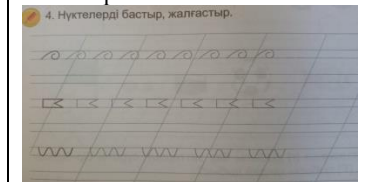 4. Нүктелерді бастыр, жалғастыр.